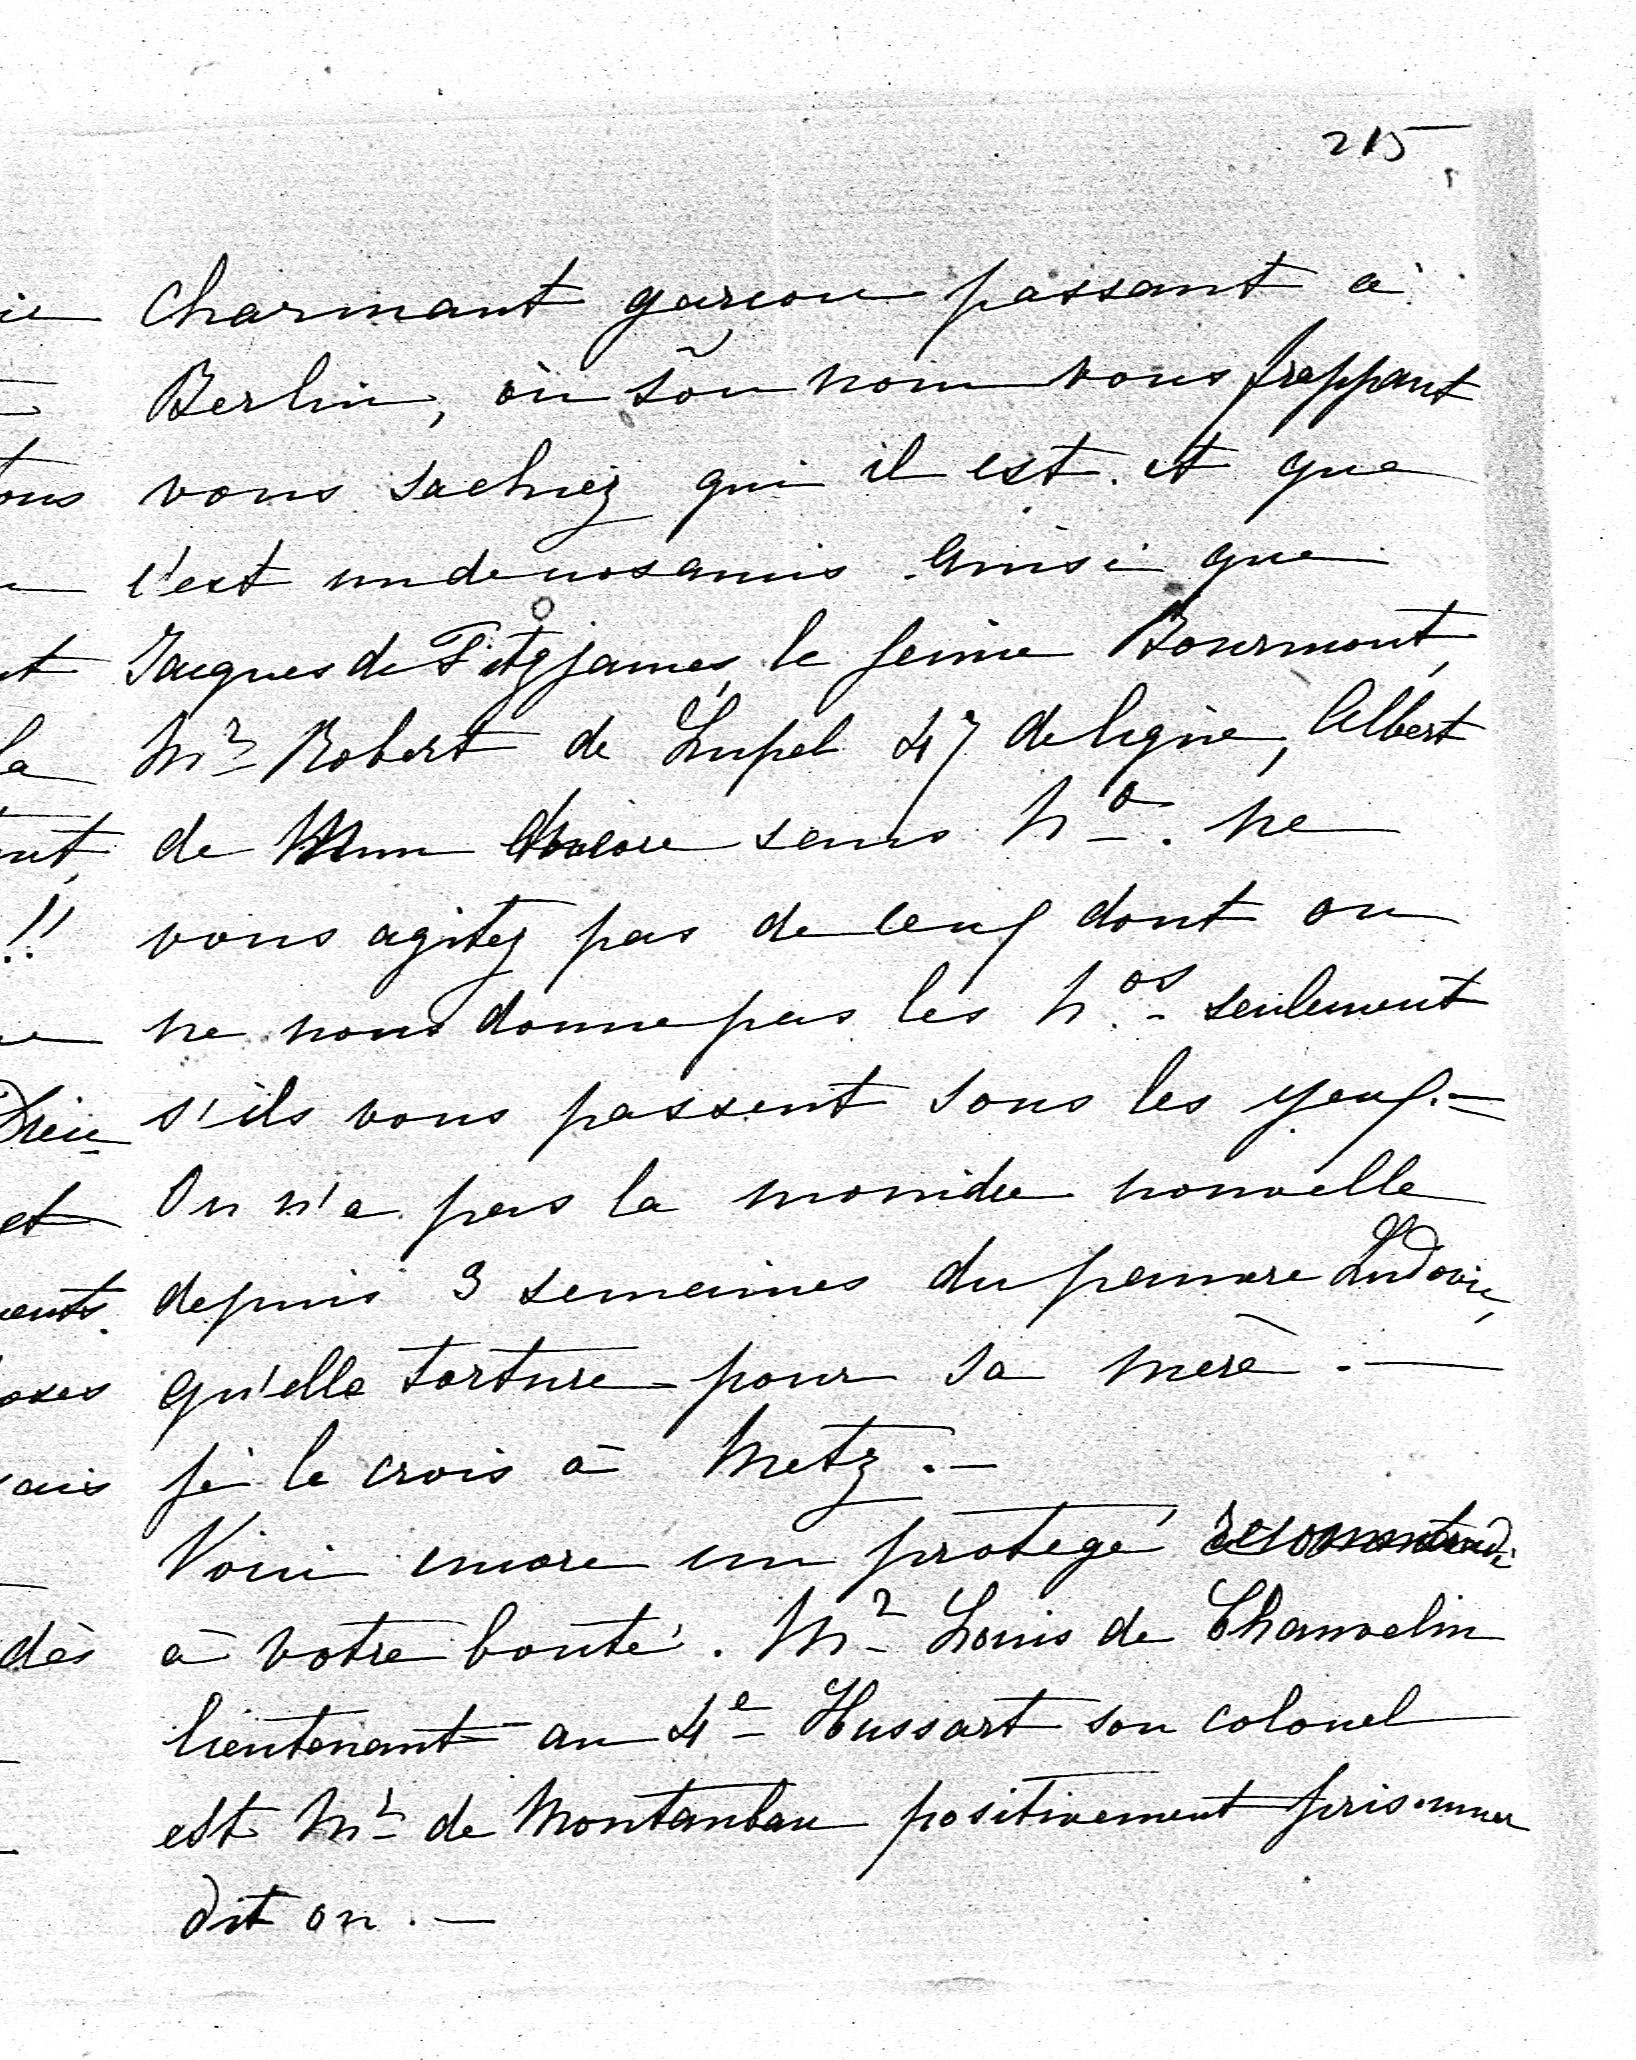 215
charmant garcon passant à
Berlin, où son nom vous frappant
vous sachiez qui il est. et que
c'est un de nos amis. Ainsi que
Jacques de Fitzjames, le jeune Bourmont,
Mr Robert de Lupel 47 de ligne, Albert
de Mun encore sans No. ne
vous agitez pas de ceux dont on
ne nous donne pas les nos - seulement
s'ils vous passent sous les yeux. -
On n'a pas la moindre nouvelle
depuis 3 semaines du pauvre Ludovic,
qu'elle torture pour sa mère. -
je le crois à Metz. -
Voici encore un protegé recommandé
à votre bonté. Mr Louis de Chauvelin
lieutenant au 4e Hussart son colonel
est Mr de Montauban positivement prisonnier
dit on. -